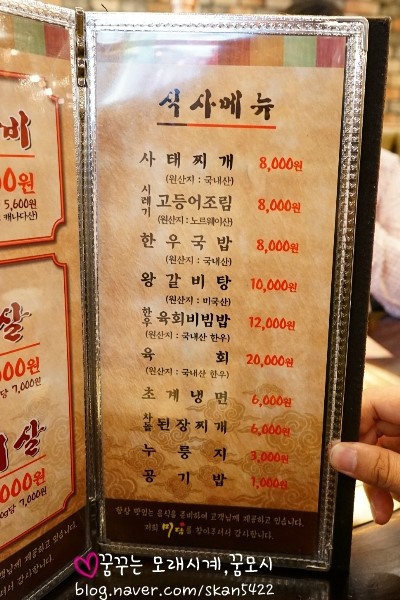 비
00원
5,600원
캐나다산)
살
00원
당 7,000원
살
000원
0g당 7,000원
식사메뉴
사태찌개 8,000원
(원산지 : 국내산)
시래기 고등어조림 8,000원
(원산지 : 노르웨이산)
한우국밥 8,000원
(원산지 : 국내산)
왕갈비탕 10,000원
(원산지 : 미국산)
한우 육회비빔밥 12,000원
(원산지 : 국내산 한우)
육회 20,000원
(원산지 : 국내산 한우)
초계냉면 6,000원
차돌 된장찌개 6,000원
누룽지 3,000원
공기밥 1,000원
항상 맛있는 음식을 준비하여 고객님께 제공하고 있습니다.
저희 를 찾아주셔서 감사합니다.
꿈꾸는 모래시계,꿈모시
blog.naver.com/skan5422